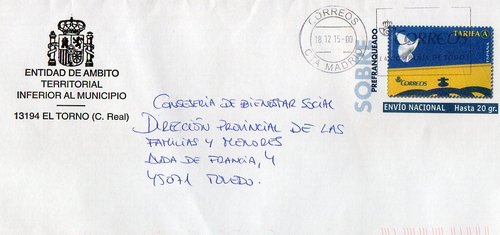 ENTIDAD DE AMBITO
TERRITORIAL
INFERIOR AL MUNICIPIO
13194 EL TORNO (C. Real)
CORREOS
18.12.15-00
CTA. MADRID
SOBRE
PREFRANQUEADO
TARIFA A
ESPAÑA
CORREOS
CORREOS
ENVÍO NACIONAL Hasta 20 gr.
CONSEJERIA DE BIENESTAR SOCIAL
DIRECCIÓN PROVINCIAL DE LAS
FAMILIAS Y MENORES
AVDA DE FRANCIA, 4
45071 TOLEDO.